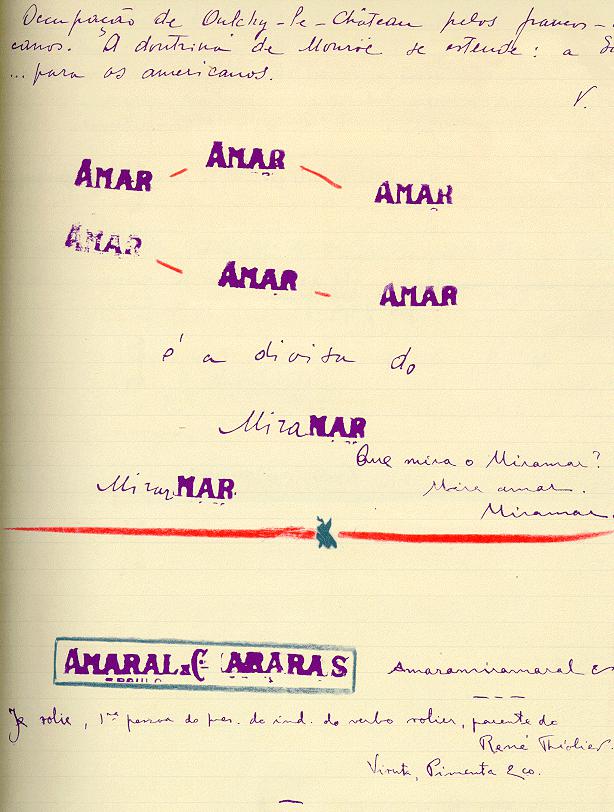 Occupação de Oulchy-le-Château pelos franco-
canos. A doutrina de Monroe se estende: a
...para os americanos.
V.
AMAR — AMAR — AMAR
AMAR — AMAR — AMAR
é a divisa do
MiraMAR
Que mira o Miramar?
MirarMAR
Mira amar.
Miramar.
AMARAL & C. ARARAS
Amaramiramaral &
Je rolie, 1ª pessoa do pres. do ind. do verbo rolier, parente do
René Thiolier.
Viruta, Pimenta & co.